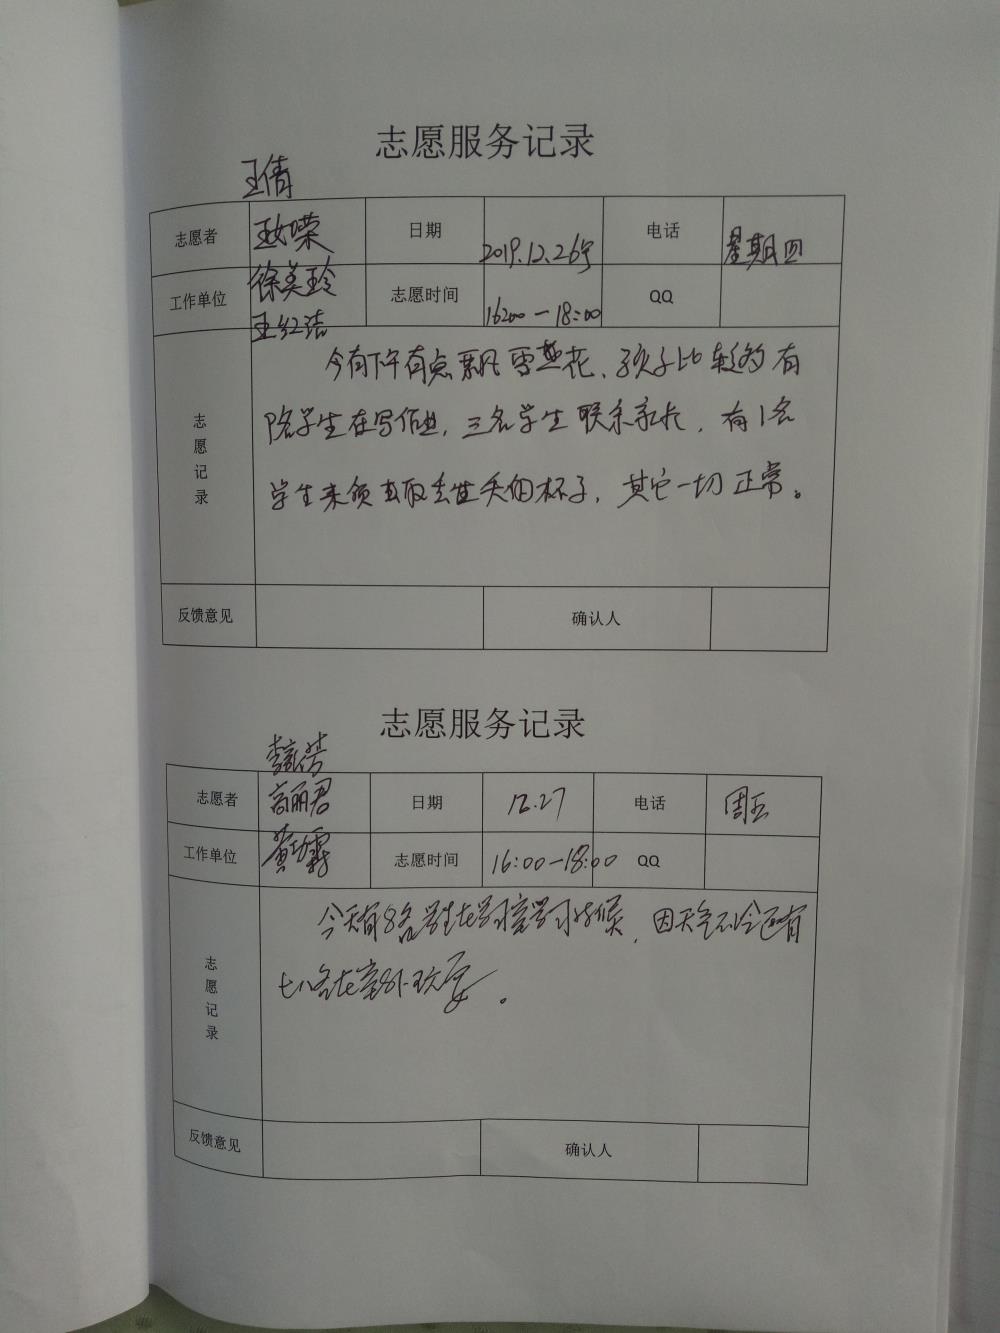 志愿服务记录
王倩
志愿者 日期 2019.12.26号 电话 星期四
徐美玲
工作单位 志愿时间 16:00—18:00 QQ
王红洁
今有下午有点飘雪花、孩子比较多有
名学生在写作业,三名学生联系家长,有1名
志愿记录
学生来领丢失的杯子,其它一切正常。
反馈意见 确认人
志愿服务记录
志愿者 高丽君 日期 12.27 电话 周五
工作单位 志愿时间 16:00—18:00 QQ
今天有8名学生在学习室学习等候,因天气不冷还有
七八名在室外玩耍。
志愿记录
反馈意见 确认人